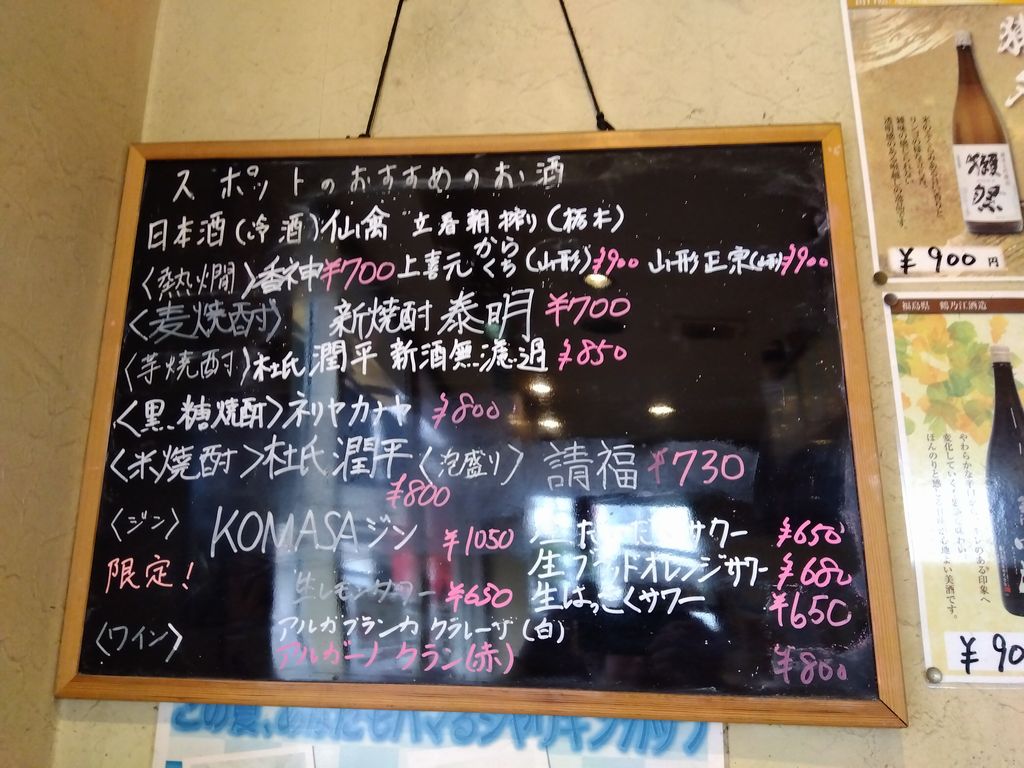 スポットのおすすめのお酒
日本酒(冷酒)仙禽 立春朝搾り(栃木)
〈熱燗〉香神¥700 上喜元 からくち(山形)¥900 山形正宗(山形)¥900
〈麦焼酎〉 新焼酎 泰明 ¥700
〈芋焼酎〉杜氏潤平 新酒無濾過 ¥850
〈黒糖焼酎〉ネリヤカナヤ ¥800
〈米焼酎〉杜氏潤平〈泡盛り〉 請福 ¥730
¥800
〈ジン〉 KOMASAジン ¥1050
サワー ¥650
限定!
生ブラッドオレンジサワー ¥680
生レモンサワー ¥650
生はっさくサワー ¥650
〈ワイン〉
アルガブランカ クラレーザ(白)
アルガーノ クラン(赤) ¥800
獺祭
¥900円
福島県 鶴乃江酒造
¥90